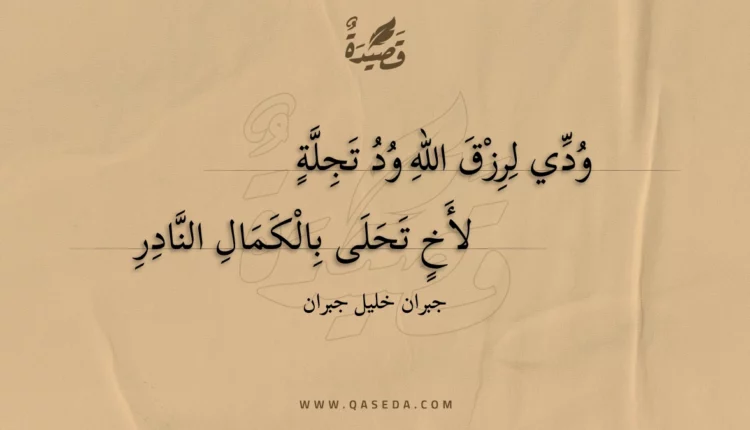 قَصِيدَةٌ
وُدِّي لِرِزْقَ اللهِ وُدُ تَجِلَّةٍ
لأَخٍ تَحَلَى بِالْكَمَالِ النَّادِرِ
جبران خليل جبران
WWW.QASEDA.COM